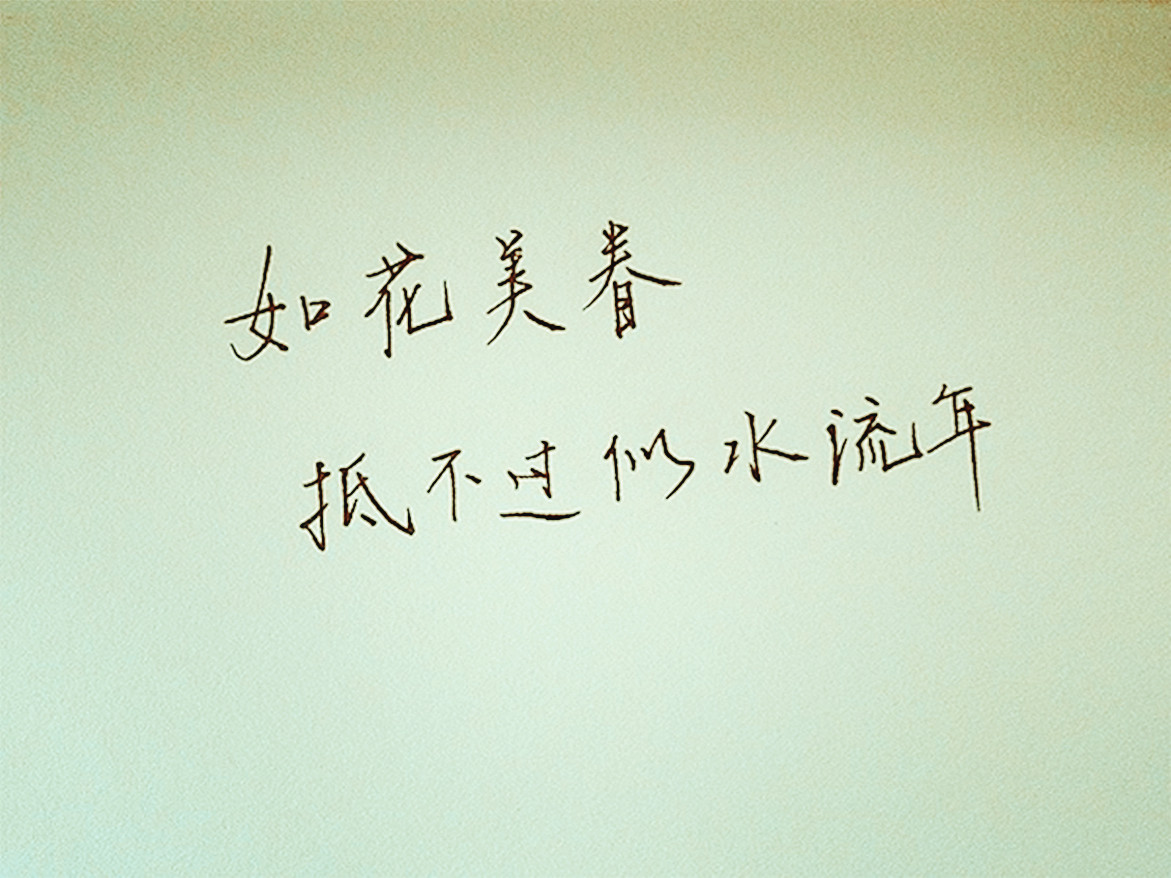 如花美眷
抵不过似水流年